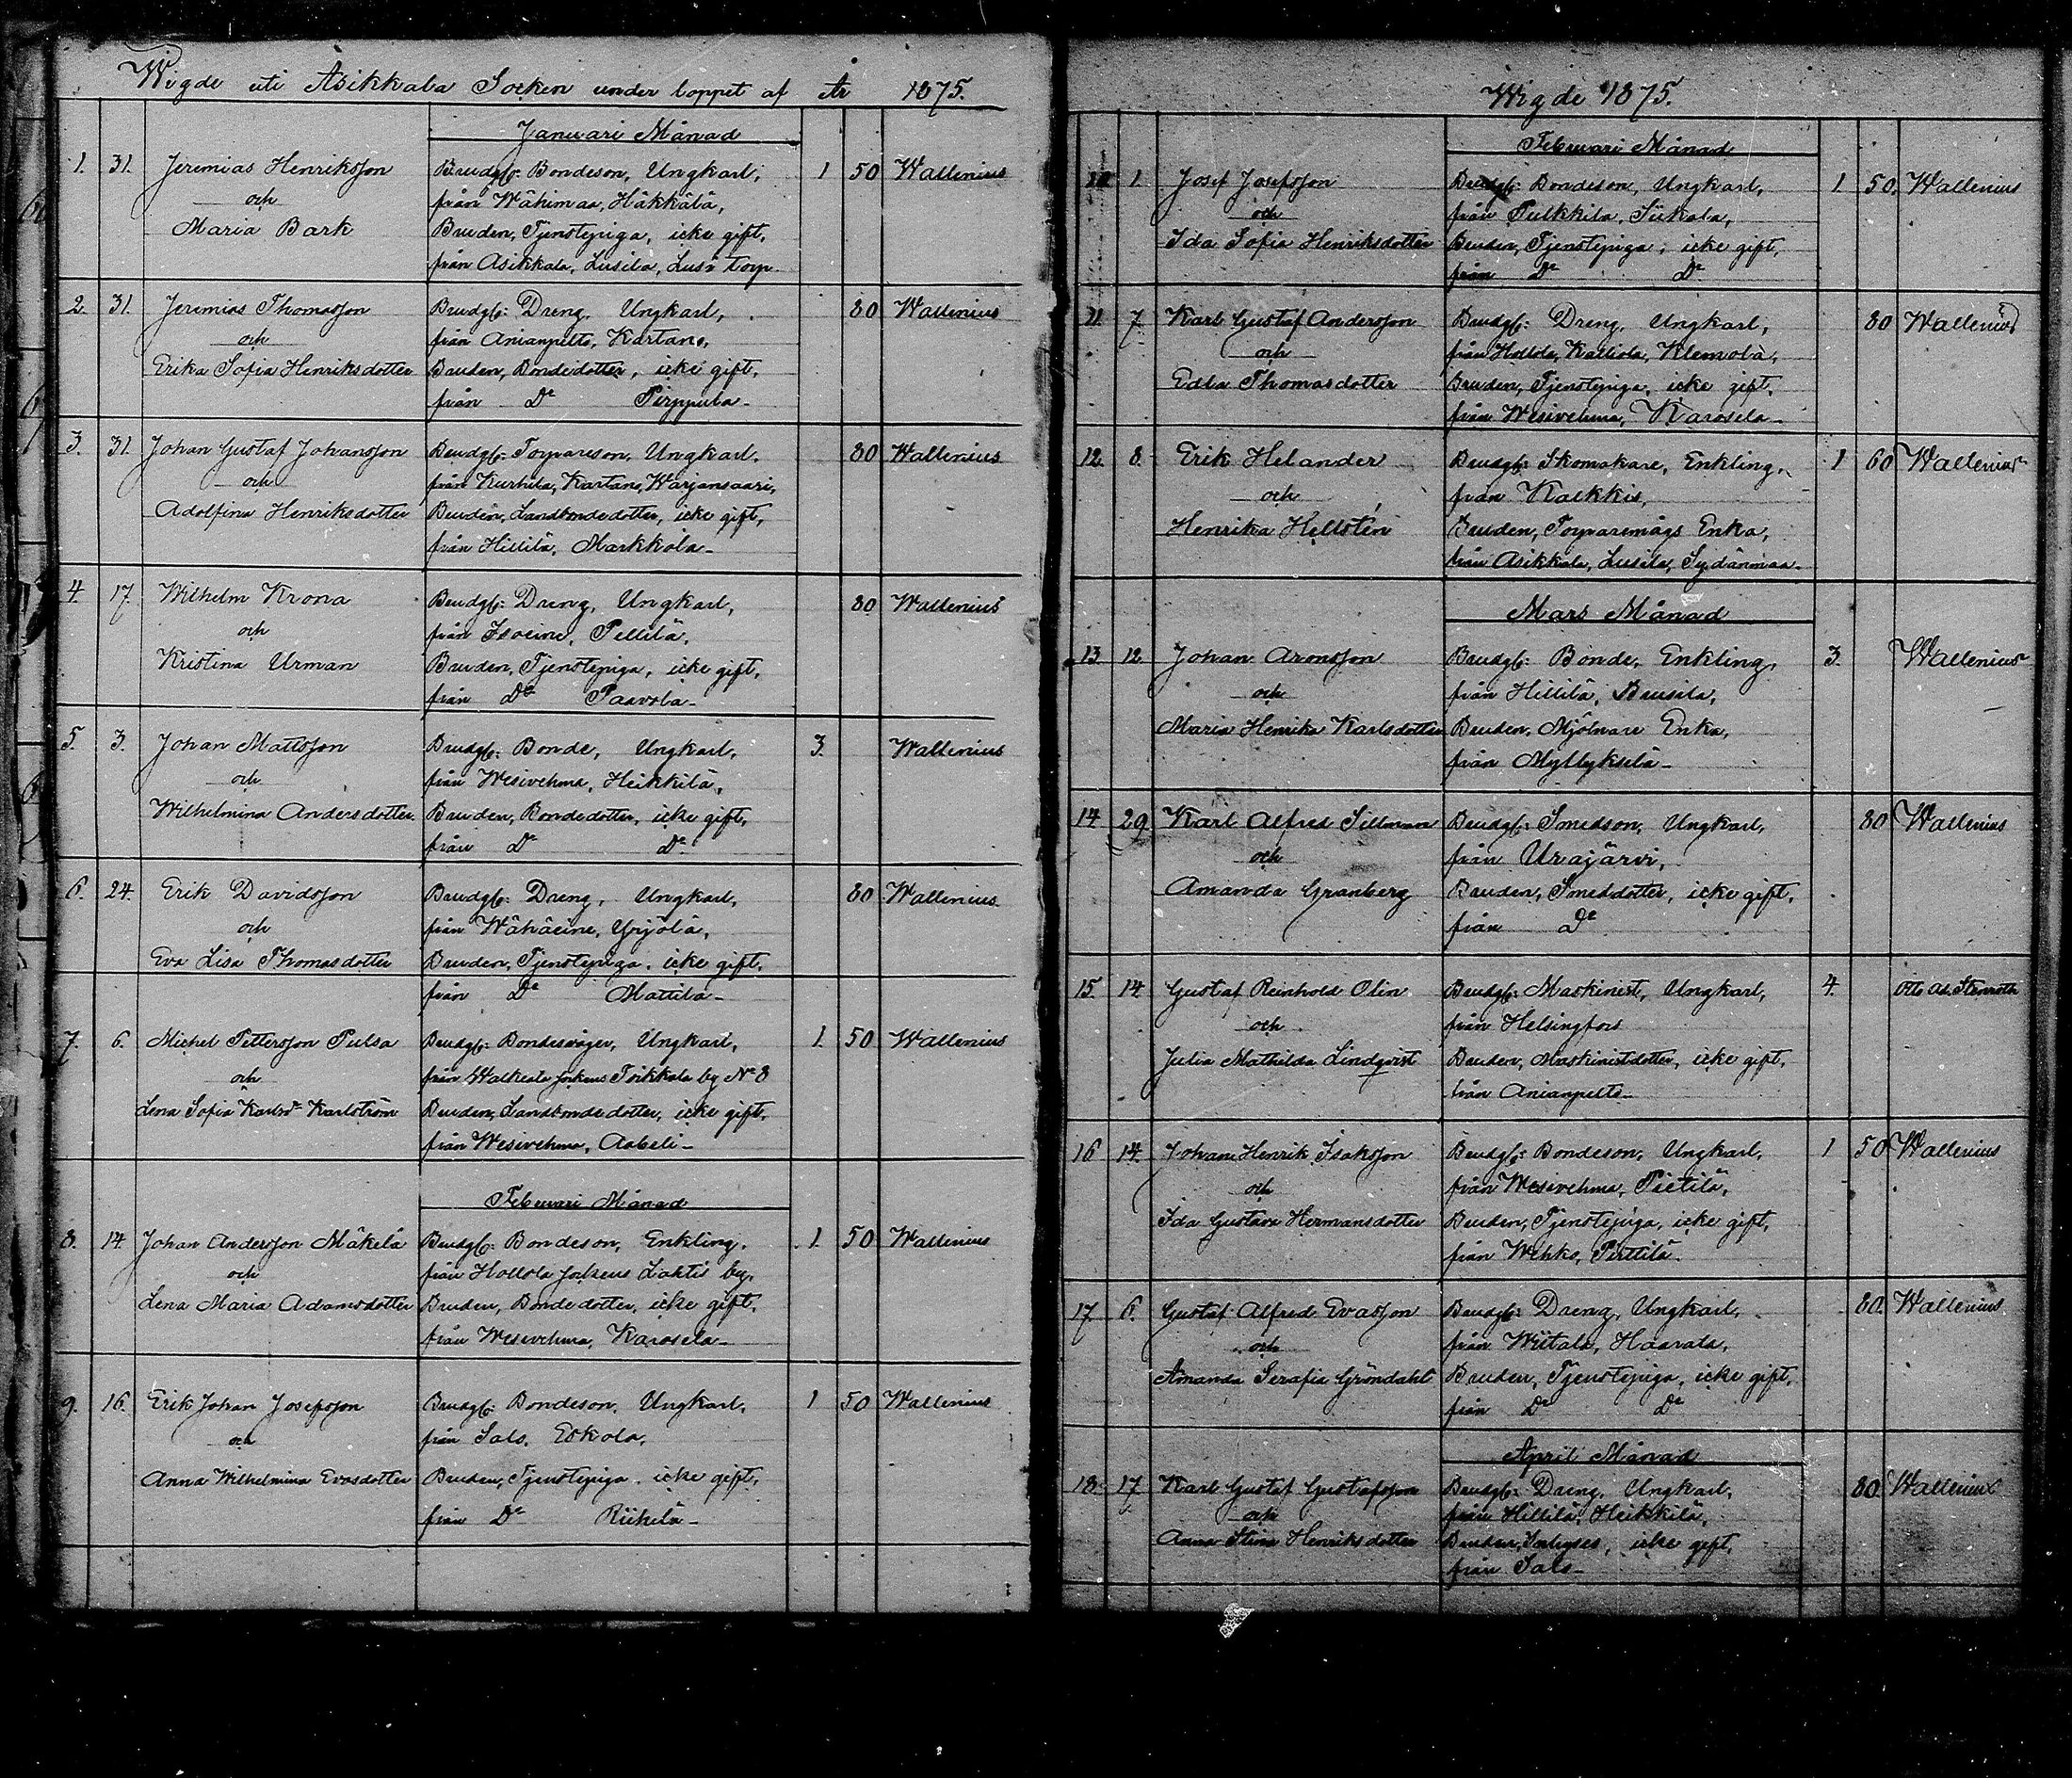 Wigde uti Asikkala Socken under loppet af År 1875.
Januari Månad
1. 31. Jeremias Henriksson Brudg: Bondeson, Ungkarl, 1 50 Wallenius
och från Wähimaa, Häkkälä,
Maria Bark Bruden, Tjenstepiga, icke gift,
från Asikkala, Lusila, Lusi torp
2. 31. Jeremias Thomasson Brudg: Dreng, Ungkarl, 80 Wallenius
och från Anianpelto, Kartano,
Erika Sofia Henriksdotter Bruden, Bondedotter, icke gift,
från Do Pirppula
3. 31. Johan Gustaf Johansson Brudg: Torpareson, Ungkarl, 80 Wallenius
och från Kurhila, Kartano, Warjansaari,
Adolfina Henriksdotter Bruden, Landbondedotter, icke gift,
från Hillilä, Markkola
4. 17. Wilhelm Krona Brudg: Dreng, Ungkarl, 80 Wallenius
och från Isoeine, Pellilä,
Kristina Urman Bruden, Tjenstepiga, icke gift,
från Do Paavola
5. 3. Johan Mattsson Brudg: Bonde, Ungkarl, 3. Wallenius
och från Wesivehma, Heikkilä,
Wilhelmina Andersdotter. Bruden, Bondedotter, icke gift,
från Do Do
6. 24. Erik Davidsson Brudg: Dreng, Ungkarl, 80 Wallenius
och från Wähäeine, Yrjölä,
Eva Lisa Thomasdotter Bruden, Tjenstepiga, icke gift,
från Do Mattila
7. 6. Michel Pettersson Pulsa Brudg: Bondesvåger, Ungkarl, 1. 50 Wallenius
och från Walkeala sockens Toikkala by No 8
Lena Sofia Karlsdr Karlström Bruden, Landbondedotter, icke gift,
från Wesivehma, Aabeli
Februari Månad
8. 14. Johan Andersson Mäkelä Brudg: Bondeson, Enkling, 1. 50 Wallenius
och från Hollola sockens Lahtis by,
Lena Maria Adamsdotter Bruden, Bondedotter, icke gift,
från Wesivehma, Karosela
9. 16. Erik Johan Josefsson Brudg: Bondeson, Ungkarl, 1 50 Wallenius
och från Salo, Eskola,
Anna Wilhelmina Evasdotter Bruden, Tjenstepiga, icke gift,
från Do Riihelä
Wigde 1875.
Februari Månad
10. 1. Josef Josefsson Brudg: Bondeson, Ungkarl, 1 50. Wallenius
och från Pulkkila, Siikala,
Ida Sofia Henriksdotter Bruden, Tjenstepiga, icke gift,
från Do Do
11. 7. Karl Gustaf Andersson Brudg: Dreng, Ungkarl, 80 Wallenius
och från Hollola, Kalliola, Klemola,
Edla Thomasdotter Bruden, Tjenstepiga, icke gift,
från Wesivehma, Karosela
12. 8. Erik Helander Brudg: Skomakare, Enkling, 1 60 Wallenius
och från Kalkkis,
Henrika Hellstén Bruden, Torparemågs Enka,
från Asikkala, Lusila, Sydänmaa
Mars Månad
13. 12. Johan Aronsson Brudg: Bonde, Enkling, 3. Wallenius
och från Hillilä, Brusila,
Maria Henrika Karlsdotter Bruden, Mjölnare Enka,
från Myllykselä
14 29 Karl Alfred Sillman Brudg: Smedson, Ungkarl, 80 Wallenius
och från Urajärvi,
Amanda Granberg Bruden, Smeddotter, icke gift,
från Do
15. 14. Gustaf Reinhold Olin Brudg: Maskinist, Ungkarl, 4. Otto Ad. Stenroth
och från Helsingfors
Julia Mathilda Lindqvist Bruden, Maskinistdotter, icke gift,
från Anianpelto
16 14. Johan Henrik Isaksson Brudg: Bondeson, Ungkarl, 1 50 Wallenius
och från Wesivehma, Pietilä,
Ida Gustava Hermansdotter Bruden, Tjenstepiga, icke gift,
från Wehko, Pirttilä
17. 6. Gustaf Alfred Evasson Brudg: Dreng, Ungkarl, 80. Wallenius
och från Wiitala, Haavala,
Amanda Serafia Gröndahl Bruden, Tjenstepiga, icke gift,
från Do Do
April Månad
18. 17 Karl Gustaf Gustafsson Brudg: Dreng, Ungkarl, 80. Wallenius
och från Hillilä, Heikkilä,
Anna Stina Henriksdotter Bruden, Inhyses, icke gift,
från Salo